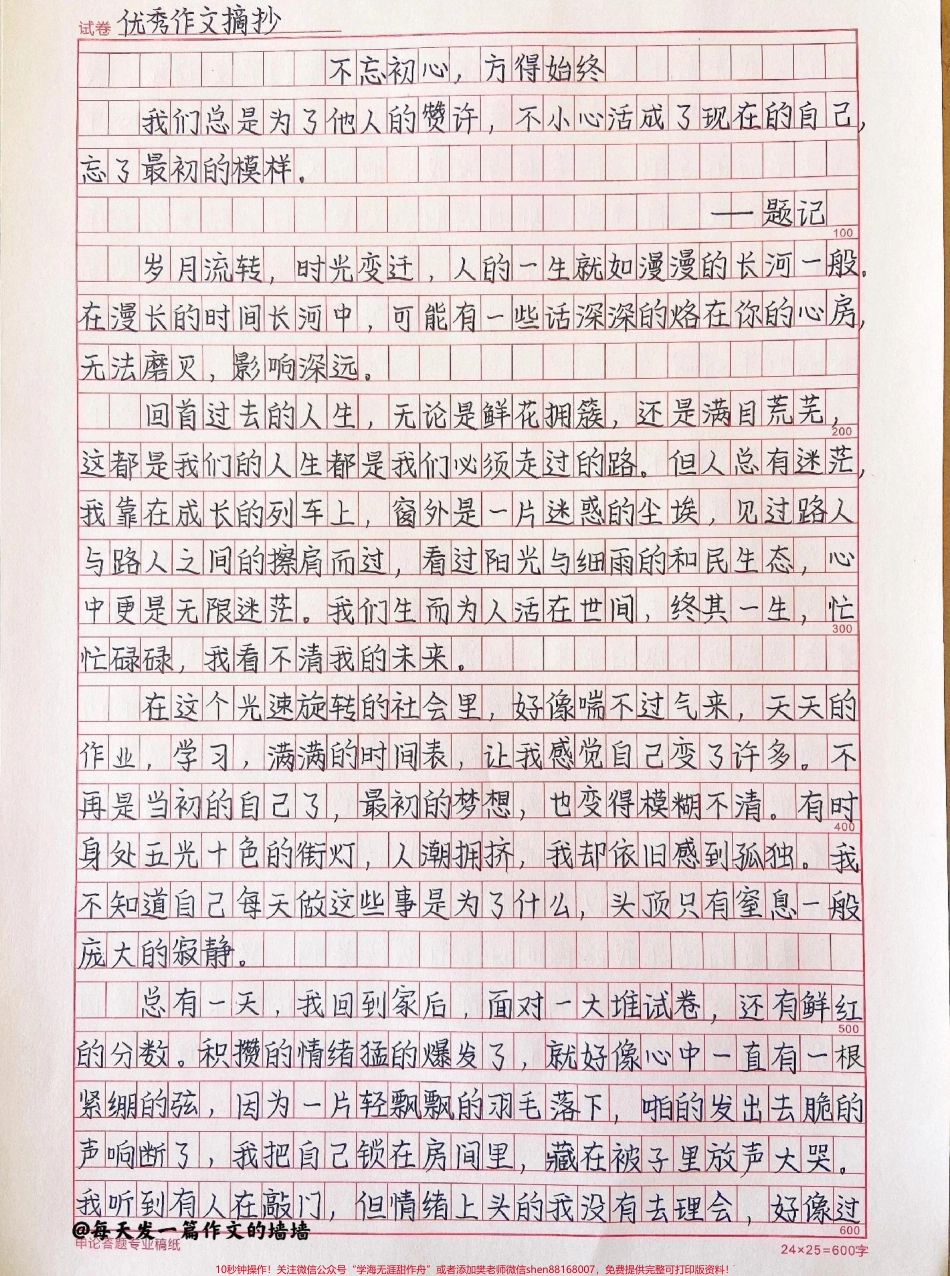 试卷 优秀作文摘抄
不忘初心，方得始终
我们总是为了他人的赞许，不小心活成了现在的自己，
忘了最初的模样。
——题记
100
岁月流转，时光变迁，人的一生就如漫漫的长河一般。
在漫长的时间长河中，可能有一些话深深的烙在你的心房，
无法磨灭，影响深远。
回首过去的人生，无论是鲜花拥簇，还是满目荒芜，
200
这都是我们的人生都是我们必须走过的路。但人总有迷茫，
我靠在成长的列车上，窗外是一片迷惑的尘埃，见过路人
与路人之间的擦肩而过，看过阳光与细雨的和民生态，心
中更是无限迷茫。我们生而为人活在世间，终其一生，忙
300
忙碌碌，我看不清我的未来。
在这个光速旋转的社会里，好像喘不过气来，天天的
作业，学习，满满的时间表，让我感觉自己变了许多。不
再是当初的自己了，最初的梦想，也变得模糊不清。有时
400
身处五光十色的街灯，人潮拥挤，我却依旧感到孤独。我
不知道自己每天做这些事是为了什么，头顶只有窒息一般
庞大的寂静。
总有一天，我回到家后，面对一大堆试卷，还有鲜红
500
的分数。积攒的情绪猛的爆发了，就好像心中一直有一根
紧绷的弦，因为一片轻飘飘的羽毛落下，啪的发出去脆的
声响断了，我把自己锁在房间里，藏在被子里放声大哭。
我听到有人在敲门，但情绪上头的我没有去理会，好像过
600
@每天发一篇作文的墙墙
申论答题专业稿纸
24×25=600字
10秒钟操作！关注微信公众号“学海无涯甜作舟”或者添加樊老师微信shen88168007，免费提供完整可打印版资料！